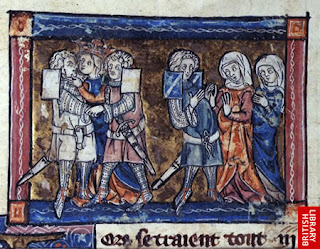 Ore se traient tout
BRITISH
LIBRARY